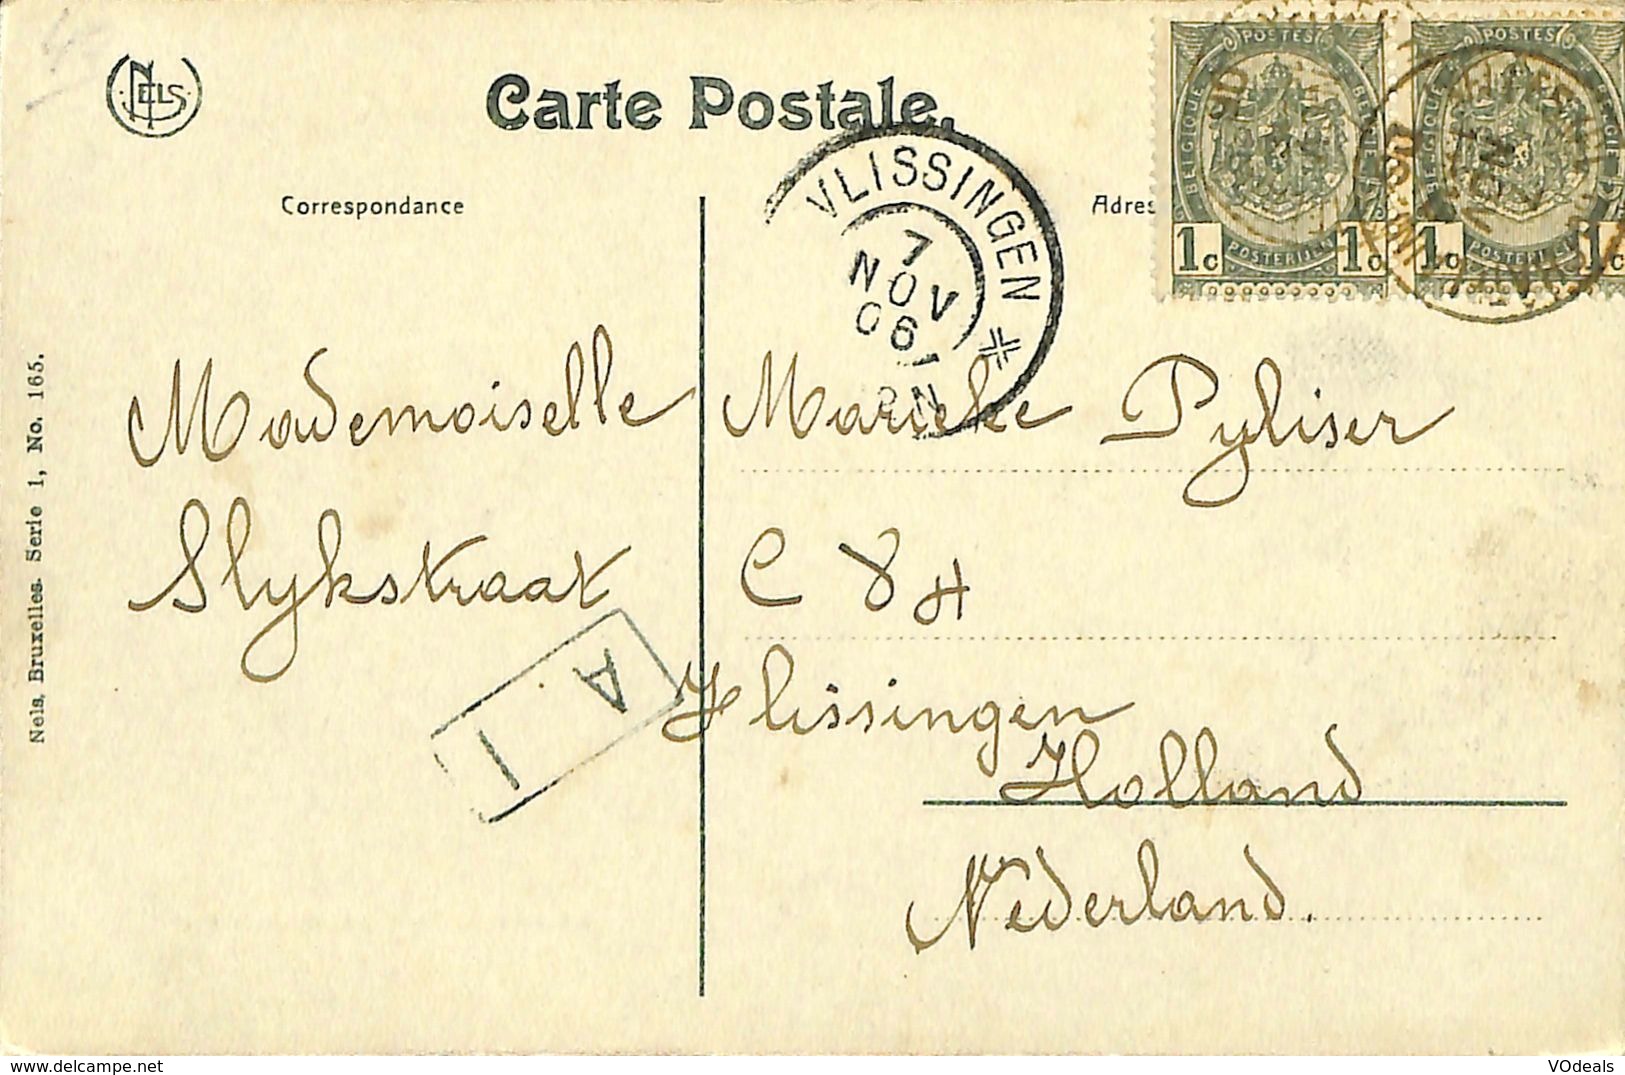 NELS
Carte Postale.
Correspondance
Adres
POSTES
BELGIQUE BELGIE
1c POSTERIJEN 1c
POSTES
BELGIQUE BELGIE
1c POSTERIJEN 1c
VLISSINGEN
7
NOV
06
Mademoiselle Marieke Pyliser
Slykstraat C 84
A
Vlissingen
Holland
Nederland.
Nels, Bruxelles. Serie 1, No. 165.
VOdeals